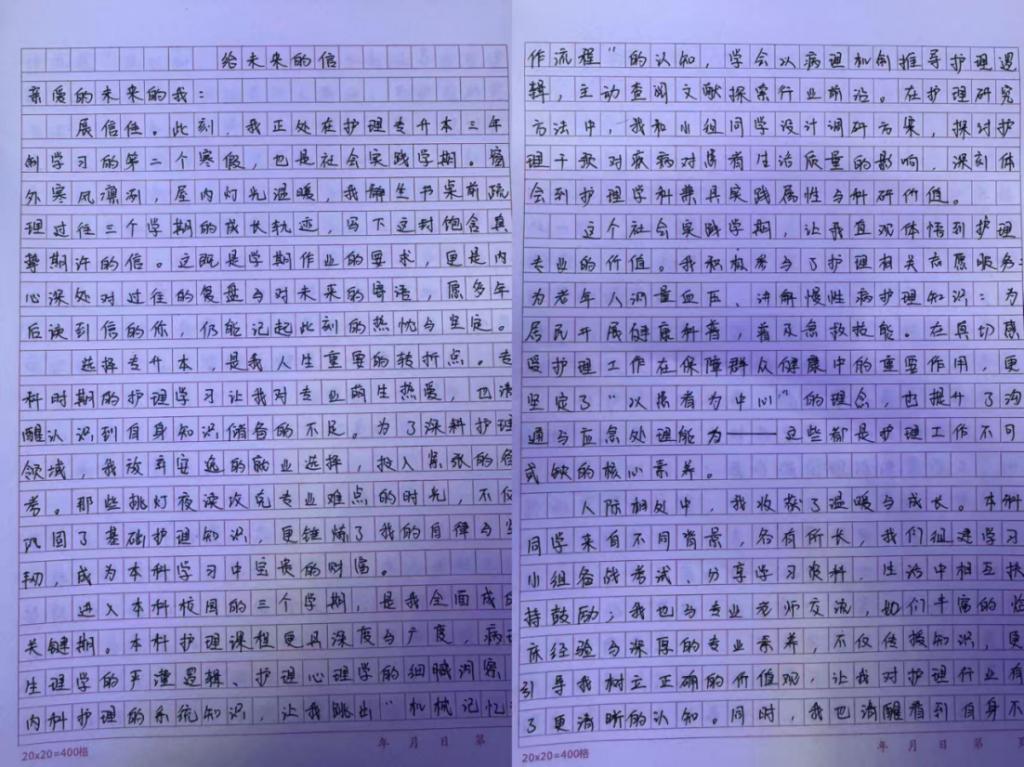 给未来的信
亲爱的未来的我：
展信佳。此刻，我正处在护理专升本三年
制学习的第二个寒假，也是社会实践学期。窗
外寒风凛冽，屋内灯光温暖，我静坐书桌前梳
理过往三个学期的成长轨迹，写下这封饱含真
挚期许的信。这既是学期作业的要求，更是内
心深处对过往的复盘与对未来的寄语，愿多年
后读到信的你，仍能记起此刻的热忱与坚定。
选择专升本，是我人生重要的转折点。专
科时期的护理学习让我对专业萌生热爱，也清
醒认识到自身知识储备的不足。为了深耕护理
领域，我放弃安逸的就业选择，投入紧张的备
考。那些挑灯夜读攻克专业难点的时光，不仅
巩固了基础护理知识，更锤炼了我的自律与坚
韧，成为本科学习中宝贵的财富。
进入本科校园的三个学期，是我全面成长
关键期。本科护理课程更具深度与广度，病
生理学的严谨逻辑、护理心理学的细腻洞察
内科护理的系统知识，让我跳出"机械记忆
年 月 日 第
20x20=400格
作流程"的认知，学会以病理机制推导护理逻
辑，主动查阅文献探索行业前沿。在护理研究
方法中，我和小组同学设计调研方案，探讨护
理干预对疾病对患者生活质量的影响，深刻体
会到护理学科兼具实践属性与科研价值。
这个社会实践学期，让我直观体悟到护理
专业的价值。我积极参与了护理相关志愿服务：
为老年人测量血压、讲解慢性病护理知识；为
居民开展健康科普，普及急救技能。在真切感
受护理工作在保障群众健康中的重要作用，更
坚定了"以患者为中心"的理念，也提升了沟
通与应急处理能力——这些都是护理工作不可
或缺的核心素养。
人际相处中，我收获了温暖与成长。本科
同学来自不同背景，各有所长，我们组建学习
小组备战考试、分享学习资料，生活中相互扶
持鼓励；我也与专业老师交流，她们丰富的临
床经验与深厚的专业素养，不仅传授知识，更
引导我树立正确的价值观，让我对护理行业有
了更清晰的认知。同时，我也清醒看到自身不
年 月 日 第
20x20=400格